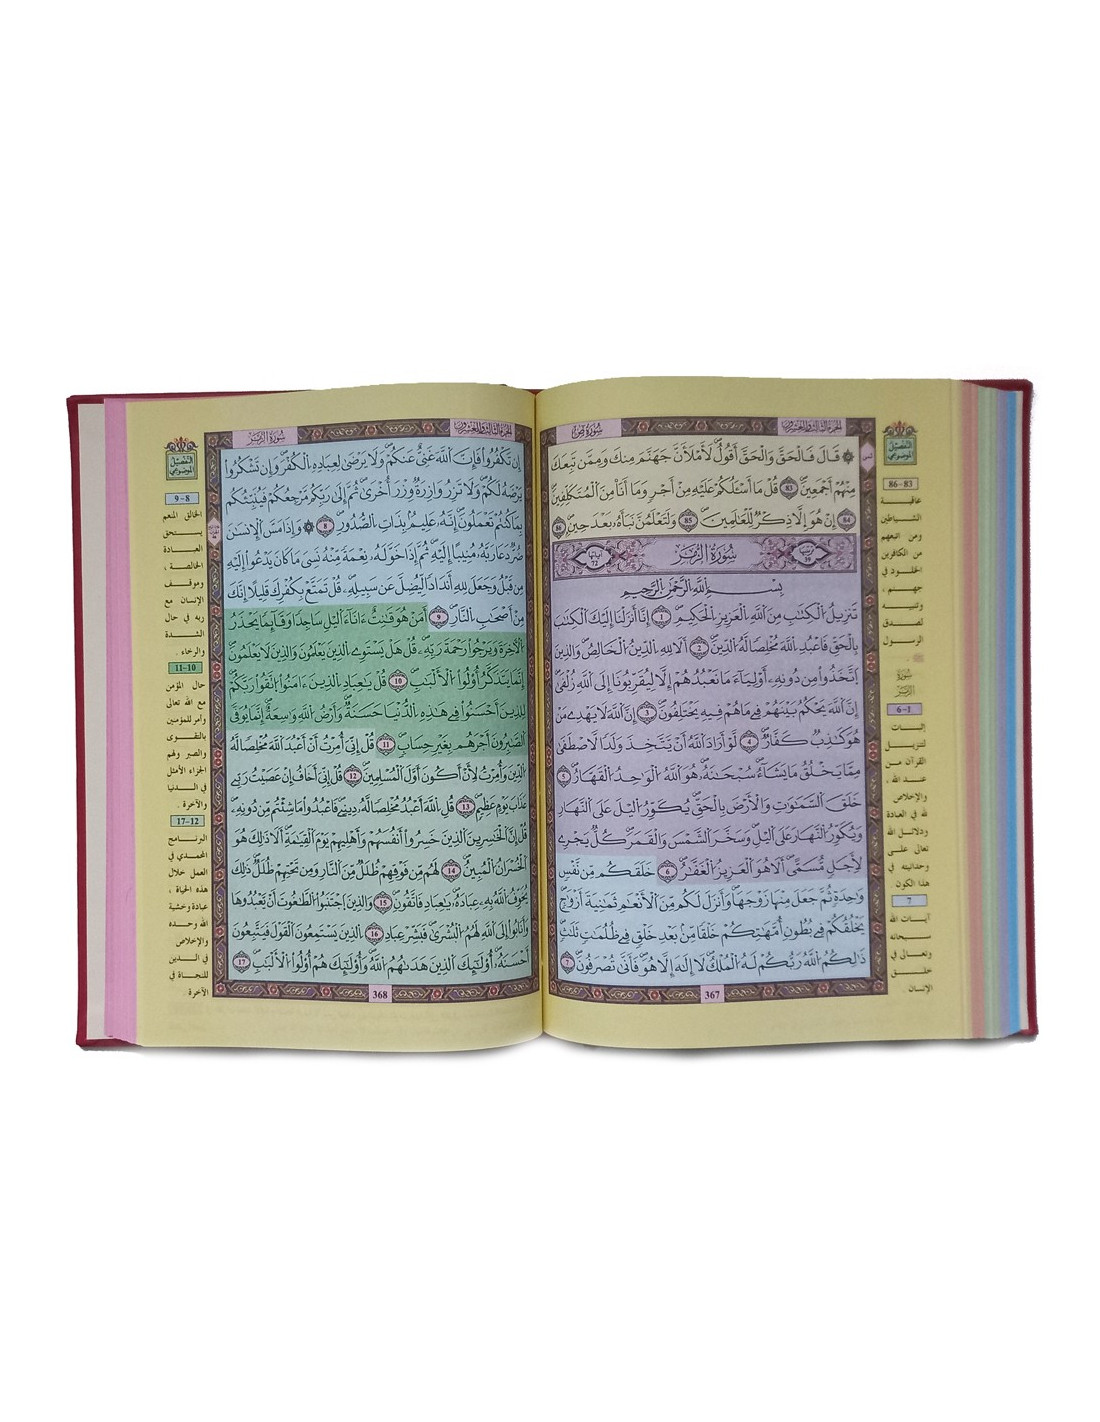 الجزء الثالث والعشرون
سورة ص
۞ قَالَ فَالْحَقَّ وَالْحَقَّ أَقُولُ لَأَمْلَأَنَّ جَهَنَّمَ مِنكَ وَمِمَّن تَبِعَكَ
مِنْهُمُۥٓ أَجْمَعِينَ 83 قُلْ مَآ أَسْـَٔلُكُمْ عَلَيْهِ مِنَ اَجْرٍ وَمَآ أَنَا مِنَ اَلْمُتَكَلِّفِينَ
84 إِنْ هُوَ إِلَّا ذِكْرٌ لِّلْعَٰلَمِينَ 85 وَلَتَعْلَمُنَّ نَبَأَهُۥ بَعْدَ حِينٍ 86
سُورَةُ الزُّمَرِ
ءاياتها 72
ترتيبها 39
بِسْمِ اِللَّهِ اِلرَّحْمَٰنِ اِلرَّحِيمِ
تَنزِيلُ اُلْكِتَٰبِ مِنَ اَللَّهِ اِلْعَزِيزِ اِلْحَكِيمِ 1 إِنَّآ أَنزَلْنَآ إِلَيْكَ اَلْكِتَٰبَ
بِالْحَقِّ فَاعْبُدِ اِللَّهَ مُخْلِصاً لَّهُ اُلدِّينَ 2 أَلَا لِلهِ اِلدِّينُ اُلْخَالِصُ وَالذِينَ
اَتَّخَذُواْ مِن دُونِهِۦٓ أَوْلِيَآءَ مَا نَعْبُدُهُمُۥٓ إِلَّا لِيُقَرِّبُونَآ إِلَى اَللَّهِ زُلْفَىٰٓ
إِنَّ اَللَّهَ يَحْكُمُ بَيْنَهُمْ فِے مَا هُمْ فِيهِ يَخْتَلِفُونَ 3 إِنَّ اَللَّهَ لَا يَهْدِے مَنْ
هُوَ كَٰذِبٌ كَفَّارٌ 4 لَّوَ اَرَادَ اَللَّهُ أَنْ يَّتَّخِذَ وَلَداً لَّاصْطَفَىٰ
مِمَّا يَخْلُقُ مَا يَشَآءُ سُبْحَٰنَهُۥ هُوَ اَللَّهُ اُلْوَٰحِدُ اُلْقَهَّارُ 5
خَلَقَ اَلسَّمَٰوَٰتِ وَالْأَرْضَ بِالْحَقِّ يُكَوِّرُ اُلَّيْلَ عَلَى اَلنَّهَارِ
وَيُكَوِّرُ اُلنَّهَارَ عَلَى اَلَّيْلِ وَسَخَّرَ اَلشَّمْسَ وَالْقَمَرَ كُلٌّ يَجْرِے
لِأَجَلٍ مُّسَمّىً أَلَا هُوَ اَلْعَزِيزُ اُلْغَفَّٰرُ 6 خَلَقَكُم مِّن نَّفْسٍ
وَٰحِدَةٍ ثُمَّ جَعَلَ مِنْهَا زَوْجَهَا وَأَنزَلَ لَكُم مِّنَ اَلْأَنْعَٰمِ ثَمَٰنِيَةَ أَزْوَٰجٍ
يَخْلُقُكُمْ فِے بُطُونِ أُمَّهَٰتِكُمْ خَلْقاً مِّنۢ بَعْدِ خَلْقٍ فِے ظُلُمَٰتٍ ثَلَٰثٍ
ذَٰلِكُمُ اُللَّهُ رَبُّكُمْ لَهُ اُلْمُلْكُ لَآ إِلَٰهَ إِلَّا هُوَ فَأَنَّىٰ تُصْرَفُونَ 7
367
التفصيل الموضوعي
86-83
عاقبة
الشياطين
ومن اتبعهم
من الكافرين
الخلود في
جهنم ،
وتنبيه
لصدق
الرسول
سورة
الزمر
6-1
إثبات
لتنزيل
القرآن من
عند الله ،
والإخلاص
لله في العبادة
ودلائل الله
تعالى على
وحدانيته في
هذا الكون
7
آيات الله
سبحانه
وتعالى في
خلق
الإنسان .
الجزء الثالث والعشرون
سورة الزمر
إِن تَكْفُرُواْ فَإِنَّ اَللَّهَ غَنِيٌّ عَنكُمْ وَلَا يَرْضَىٰ لِعِبَادِهِ اِلْكُفْرَ وَإِن تَشْكُرُواْ
يَرْضَهُ لَكُمْ وَلَا تَزِرُ وَازِرَةٌ وِزْرَ أُخْرَىٰ ثُمَّ إِلَىٰ رَبِّكُم مَّرْجِعُكُمْ فَيُنَبِّئُكُم
بِمَا كُنتُمْ تَعْمَلُونَ إِنَّهُۥ عَلِيمٌۢ بِذَاتِ اِلصُّدُورِ 8 ۞ وَإِذَا مَسَّ اَلْإِنسَٰنَ
ضُرٌّ دَعَا رَبَّهُۥ مُنِيباً إِلَيْهِ ثُمَّ إِذَا خَوَّلَهُۥ نِعْمَةً مِّنْهُ نَسِيَ مَا كَانَ يَدْعُوٓاْ إِلَيْهِ
مِن قَبْلُ وَجَعَلَ لِلهِ أَندَاداً لِّيُضِلَّ عَن سَبِيلِهِۦ قُلْ تَمَتَّعْ بِكُفْرِكَ قَلِيلاً اِنَّكَ
مِنَ اَصْحَٰبِ اِلنَّارِ 9 أَمَنْ هُوَ قَٰنِتٌ ءَانَآءَ اَلَّيْلِ سَاجِداً وَقَآئِماً يَحْذَرُ
اُلْأَخِرَةَ وَيَرْجُواْ رَحْمَةَ رَبِّهِۦ قُلْ هَلْ يَسْتَوِے اِلذِينَ يَعْلَمُونَ وَالذِينَ لَا يَعْلَمُونَ
إِنَّمَا يَتَذَكَّرُ أُوْلُواْ اُلْأَلْبَٰبِ 10 قُلْ يَٰعِبَادِ اِلذِينَ ءَامَنُواْ اُتَّقُواْ رَبَّكُمْ
لِلذِينَ أَحْسَنُواْ فِے هَٰذِهِ اِلدُّنْيَا حَسَنَةٌ وَأَرْضُ اُللَّهِ وَٰسِعَةٌ اِنَّمَا يُوَفَّى
اَلصَّٰبِرُونَ أَجْرَهُم بِغَيْرِ حِسَابٍ 11 قُلِ اِنِّيَ أُمِرْتُ أَنَ اَعْبُدَ اَللَّهَ مُخْلِصاً لَّهُ
اُلدِّينَ وَأُمِرْتُ لِأَنَ اَكُونَ أَوَّلَ اَلْمُسْلِمِينَ 12 قُلِ اِنِّيَ أَخَافُ إِنْ عَصَيْتُ رَبِّے
عَذَابَ يَوْمٍ عَظِيمٍ 13 قُلِ اِللَّهَ أَعْبُدُ مُخْلِصاً لَّهُۥ دِينِے فَاعْبُدُواْ مَا شِئْتُم مِّن دُونِهِۦ
قُلِ اِنَّ اَلْخَٰسِرِينَ اَلذِينَ خَسِرُوٓاْ أَنفُسَهُمْ وَأَهْلِيهِمْ يَوْمَ اَلْقِيَٰمَةِ أَلَا ذَٰلِكَ هُوَ
اَلْخُسْرَانُ اُلْمُبِينُ 14 لَهُم مِّن فَوْقِهِمْ ظُلَلٌ مِّنَ اَلنَّارِ وَمِن تَحْتِهِمْ ظُلَلٌ ذَٰلِكَ
يُخَوِّفُ اُللَّهُ بِهِۦ عِبَادَهُۥ يَٰعِبَادِ فَاتَّقُونِ 15 وَالذِينَ اَجْتَنَبُواْ اُلطَّٰغُوتَ أَنْ يَّعْبُدُوهَا
وَأَنَابُوٓاْ إِلَى اَللَّهِ لَهُمُ اُلْبُشْرَىٰ فَبَشِّرْ عِبَادِ 16 اِلذِينَ يَسْتَمِعُونَ اَلْقَوْلَ فَيَتَّبِعُونَ
أَحْسَنَهُۥٓ أُوْلَٰٓئِكَ اَلذِينَ هَدَىٰهُمُ اُللَّهُ وَأُوْلَٰٓئِكَ هُمُۥٓ أُوْلُواْ اُلْأَلْبَٰبِ 17
368
التفصيل الموضوعي
9-8
الخالق المنعم
يستحق
العبادة
الخالصة ،
وموقف
الإنسان مع
ربه في حال
الشدة
والرخاء .
11-10
حال المؤمن
مع الله تعالى
وأمر للمؤمنين
بالتقوى
والصبر ولهم
الجزاء الأمثل
في الدنيا
والآخرة .
17-12
البرنامج
المحمدي في
العمل خلال
هذه الحياة ،
عبادة وخشية
الله وحده
والإخلاص
في الدين
للنجاة في
الآخرة .